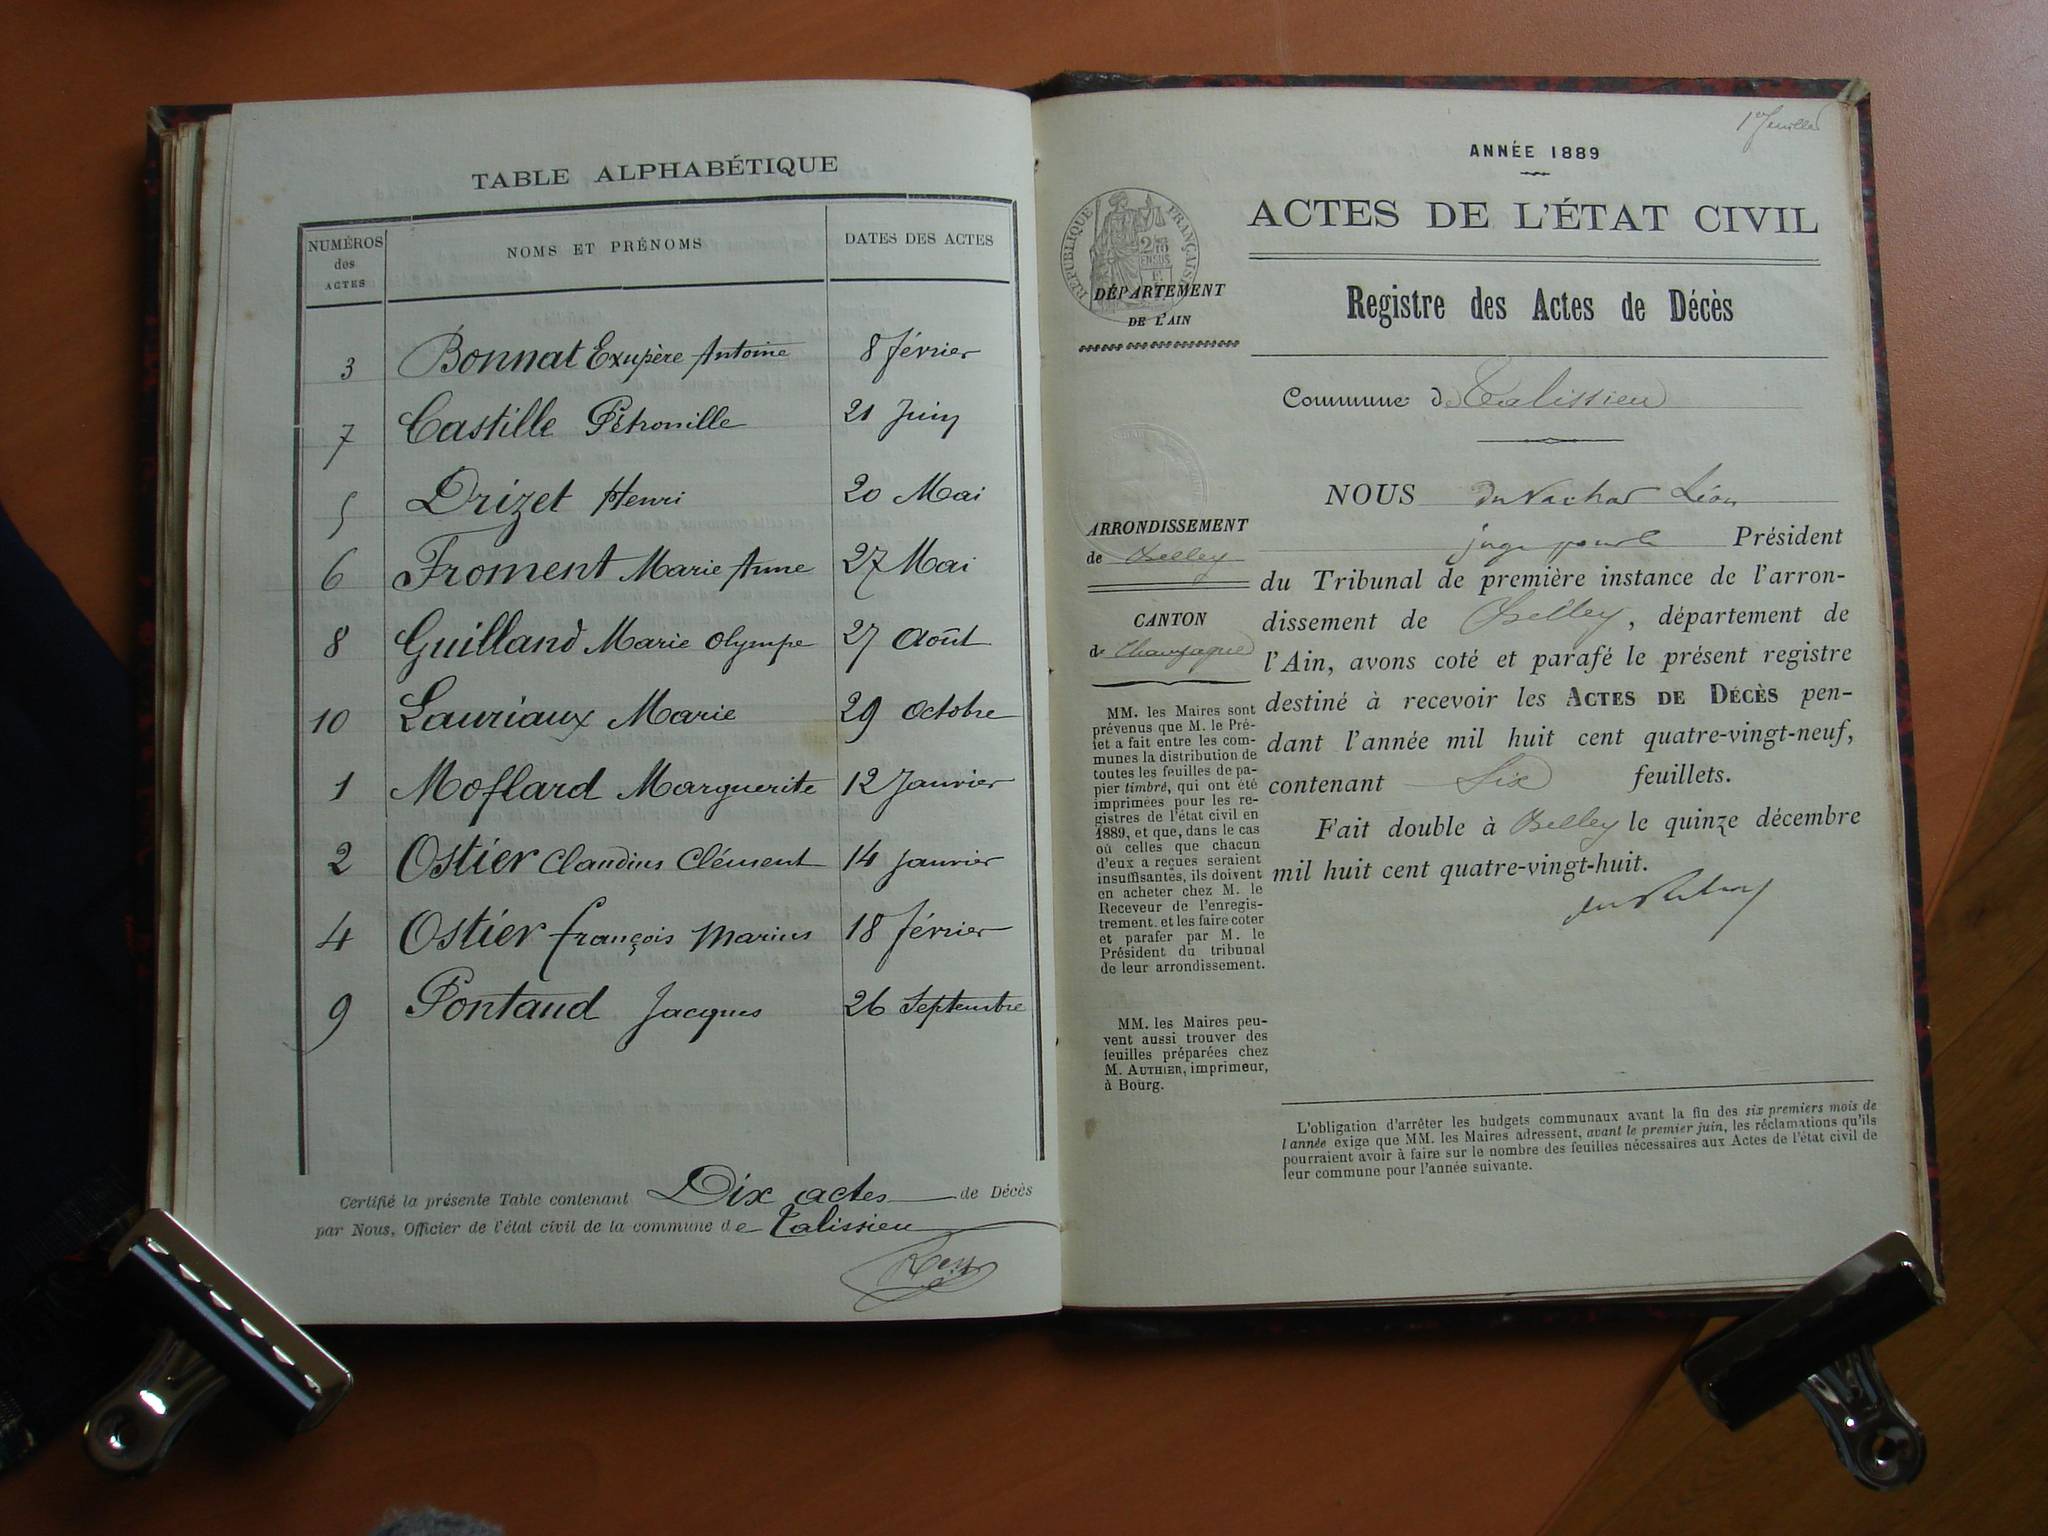 TABLE ALPHABÉTIQUE
NUMÉROS des ACTES NOMS ET PRÉNOMS DATES DES ACTES
3 Bonnat Exupère Antoine 8 février
7 Castille Pétronille 21 Juin
5 Drizet Henri 20 Mai
6 Froment Marie Anne 27 Mai
8 Guilland Marie Olympe 27 Août
10 Lauriaux Marie 29 Octobre
1 Moflard Marguerite 12 Janvier
2 Ostier Claudius Clément 14 Janvier
4 Ostier François Marius 18 février
9 Pontaud Jacques 26 Septembre
Certifié la présente Table contenant Dix actes de Décès
par Nous, Officier de l'état civil de la commune de Talissieu
1er feuillet
ANNÉE 1889
ACTES DE L'ÉTAT CIVIL
Registre des Actes de Décès
RÉPUBLIQUE FRANÇAISE
DÉPARTEMENT
DE L'AIN
Commune de Talissieu
ARRONDISSEMENT
de Belley
CANTON
de Champagne
MM. les Maires sont
prévenus que M. le Pré-
fet a fait entre les com-
munes la distribution de
toutes les feuilles de pa-
pier timbré, qui ont été
imprimées pour les re-
gistres de l'état civil en
1889, et que, dans le cas
où celles que chacun
d'eux a reçues seraient
insuffisantes, ils doivent
en acheter chez M. le
Receveur de l'enregis-
trement. et les faire coter
et parafer par M. le
Président du tribunal
de leur arrondissement.
MM. les Maires peu-
vent aussi trouver des
feuilles préparées chez
M. AUTHIER, imprimeur,
à Bourg.
NOUS Léon
juge pour le Président
du Tribunal de première instance de l'arron-
dissement de Belley, département de
l'Ain, avons coté et parafé le présent registre
destiné à recevoir les ACTES DE DÉCÈS pen-
dant l'année mil huit cent quatre-vingt-neuf,
contenant Six feuillets.
Fait double à Belley le quinze décembre
mil huit cent quatre-vingt-huit.
L'obligation d'arrêter les budgets communaux avant la fin des six premiers mois de
l'année exige que MM. les Maires adressent, avant le premier juin, les réclamations qu'ils
pourraient avoir à faire sur le nombre des feuilles nécessaires aux Actes de l'état civil de
leur commune pour l'année suivante.